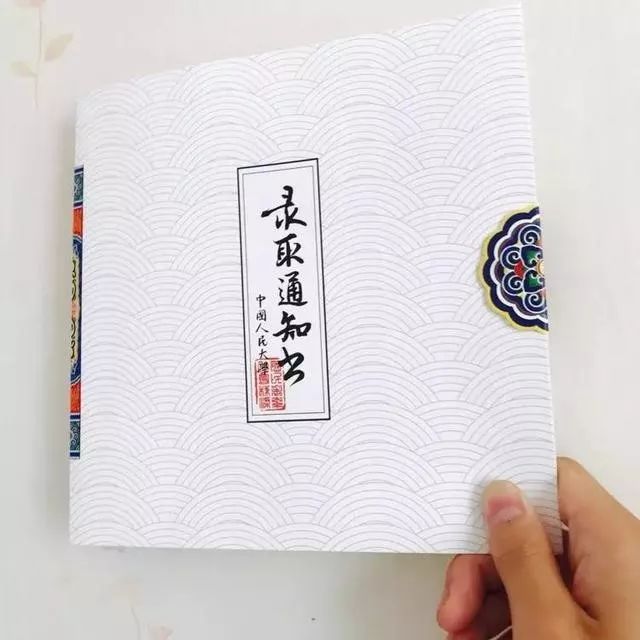 录取通知书
中國人民大學